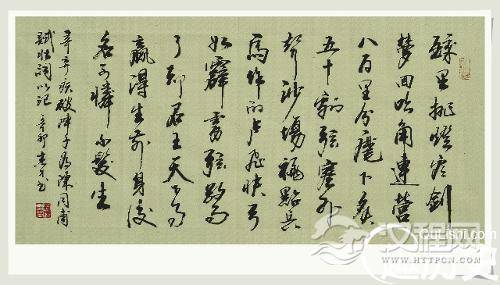 醉里挑灯看剑
梦回吹角连营
八百里分麾下炙
五十翻弦塞外
声沙场秋点兵
马作的卢飞快弓
如霹雳弦惊
了却君王天下事
赢得生前身后
名可怜白发生
辛弃疾破阵子为陈同甫
赋壮词以记 辛卯
qulishi.com
趣历史
汉程网
WWW.HTTPCN.COM